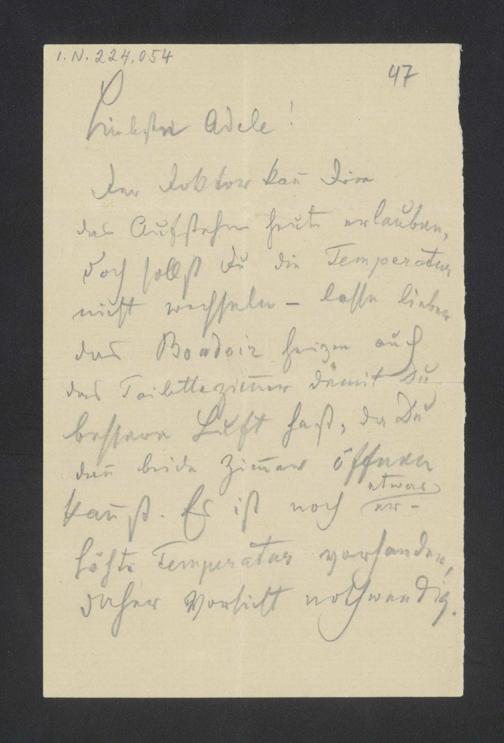 I.N. 224.054
47
Liebste Adele!
Der Doktor kann Dir
das Aufstehn heute erlauben,
doch sollst Du die Temperatur
nicht wechseln – lasse lieber
das Boudoir heizen auch
das Toilettezimmer damit Du
bessere Luft hast, da Du
dann beide Zimmer öffnen
kannst. Es ist noch etwas er-
höhte Temperatur vorhanden,
daher Vorsicht nothwendig.